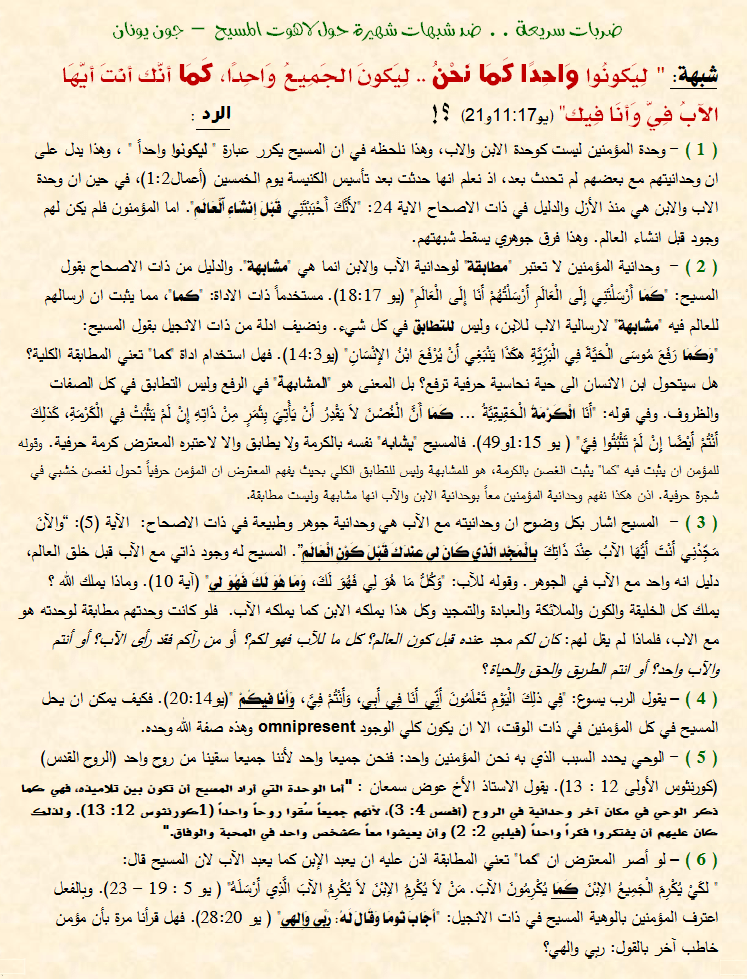 ضربات سريعة . . ضد شبهات شهيرة حول لاهوت المسيح – جون يونان
شبهة: " لِيَكونُوا وَاحِدًا كَمَا نَحْنُ .. لِيَكونَ الجَمِيعُ وَاحِدًا، كَمَا أنَّك أنْتَ أيُّهَا
الآبُ فِيَّ وَأنَا فِيك" (يو11:17و21) ؟! الرد :
( 1 ) – وحدة المؤمنين ليست كوحدة الابن والاب، وهذا نلحظه في ان المسيح يكرر عبارة " ليكونوا واحداً " ، وهذا يدل على
ان وحدانيتهم مع بعضهم لم تحدث بعد، اذ نعلم انها حدثت بعد تأسيس الكنيسة يوم الخمسين (أعمال1:2)، في حين ان وحدة
الاب والابن هي منذ الأزل والدليل في ذات الاصحاح الاية 24: "لأَنَّكَ أَحْبَبْتَنِي قَبْلَ إِنْشَاءِ الْعَالَمِ". اما المؤمنون فلم يكن لهم
وجود قبل انشاء العالم. وهذا فرق جوهري يسقط شبهتهم.
( 2 ) – وحدانية المؤمنين لا تعتبر "مطابقة" لوحدانية الآب والابن انما هي "مشابهة". والدليل من ذات الاصحاح بقول
المسيح: "كَمَا أَرْسَلْتَنِي إِلَى الْعَالَمِ أَرْسَلْتُهُمْ أَنَا إِلَى الْعَالَمِ" (يو 18:17). مستخدماً ذات الاداة: "كما"، مما يثبت ان ارسالهم
للعالم فيه "مشابهة" لارسالية الاب للابن، وليس للتطابق في كل شيء. ونضيف ادلة من ذات الانجيل بقول المسيح:
"وَكَمَا رَفَعَ مُوسَى الْحَيَّةَ فِي الْبَرِّيَّةِ هكَذَا يَنْبَغِي أَنْ يُرْفَعَ ابْنُ الإِنْسَانِ" (يو14:3). فهل استخدام اداة "كما" تعني المطابقة الكلية؟
هل سيتحول ابن الانسان الى حية نحاسية حرفية ترفع؟ بل المعنى هو "المشابهة" في الرفع وليس التطابق في كل الصفات
والظروف. وفي قوله: "أَنَا الْكَرْمَةُ الْحَقِيقِيَّةُ ... كَمَا أَنَّ الْغُصْنَ لاَ يَقْدِرُ أَنْ يَأْتِيَ بِثَمَرٍ مِنْ ذَاتِهِ إِنْ لَمْ يَثْبُتْ فِي الْكَرْمَةِ، كَذلِكَ
أَنْتُمْ أَيْضًا إِنْ لَمْ تَثْبُتُوا فِيَّ" ( يو 1:15و49). فالمسيح "يشابه" نفسه بالكرمة ولا يطابق والا لاعتبره المعترض كرمة حرفية. وقوله
للمؤمن ان يثبت فيه "كما" يثبت الغصن بالكرمة، هو للمشابهة وليس للتطابق الكلي بحيث يفهم المعترض ان المؤمن حرفياً تحول لغصن خشبي في
شجرة حرفية. اذن هكذا نفهم وحدانية المؤمنين معاً بوحدانية الابن والآب انها مشابهة وليست مطابقة.
( 3 ) – المسيح اشار بكل وضوح ان وحدانيته مع الآب هي وحدانية جوهر وطبيعة في ذات الاصحاح: الآية (5): "وَالآنَ
مَجِّدْنِي أَنْتَ أَيُّهَا الآبُ عِنْدَ ذَاتِكَ بِالْمَجْدِ الَّذِي كَانَ لِي عِنْدَكَ قَبْلَ كَوْنِ الْعَالَمِ". المسيح له وجود ذاتي مع الآب قبل خلق العالم،
دليل انه واحد مع الآب في الجوهر. وقوله للآب: "وَكُلُّ مَا هُوَ لِي فَهُوَ لَكَ، وَمَا هُوَ لَكَ فَهُوَ لِي" (آية 10). وماذا يملك الله ؟
يملك كل الخليقة والكون والملائكة والعبادة والتمجيد وكل هذا يملكه الابن كما يملكه الآب. فلو كانت وحدتهم مطابقة لوحدته هو
مع الاب، فلماذا لم يقل لهم: كان لكم مجد عنده قبل كون العالم؟ كل ما للآب فهو لكم؟ أو من رآكم فقد رأى الآب؟ أو أنتم
والآب واحد؟ أو انتم الطريق والحق والحياة؟
( 4 ) – يقول الرب يسوع: "فِي ذلِكَ الْيَوْمِ تَعْلَمُونَ أَنِّي أَنَا فِي أَبِي، وَأَنْتُمْ فِيَّ، وَأَنَا فِيكُمْ "(يو20:14). فكيف يمكن ان يحل
المسيح في كل المؤمنين في ذات الوقت، الا ان يكون كلي الوجود omnipresent وهذه صفة الله وحده.
( 5 ) – الوحي يحدد السبب الذي به نحن المؤمنين واحد: فنحن جميعا واحد لأننا جميعا سقينا من روح واحد (الروح القدس)
(كورنثوس الأولى 12 : 13). يقول الاستاذ الأخ عوض سمعان : "أما الوحدة التي أراد المسيح أن تكون بين تلاميذه، فهي كما
ذكر الوحي في مكان آخر وحدانية في الروح (أفسس 4: 3)، لأنهم جميعاً سُقوا روحاً واحداً (1كورنثوس 12: 13). ولذلك
كان عليهم أن يفتكروا فكراً واحداً (فيلبي 2: 2) وأن يعيشوا معاً كشخص واحد في المحبة والوفاق."
( 6 ) – لو أصر المعترض ان "كما" تعني المطابقة اذن عليه ان يعبد الإبن كما يعبد الآب لان المسيح قال:
" لِكَيْ يُكْرِمَ الْجَمِيعُ الابْنَ كَمَا يُكْرِمُونَ الآبَ. مَنْ لاَ يُكْرِمُ الابْنَ لاَ يُكْرِمُ الآبَ الَّذِي أَرْسَلَهُ" ( يو 5 : 19 – 23). وبالفعل
اعترف المؤمنين بالوهية المسيح في ذات الانجيل: "أَجَابَ تُومَا وَقَالَ لَهُ: رَبِّي وَإِلهِي" ( يو 28:20). فهل قرأنا مرة بأن مؤمن
خاطب آخر بالقول: ربي والهي؟